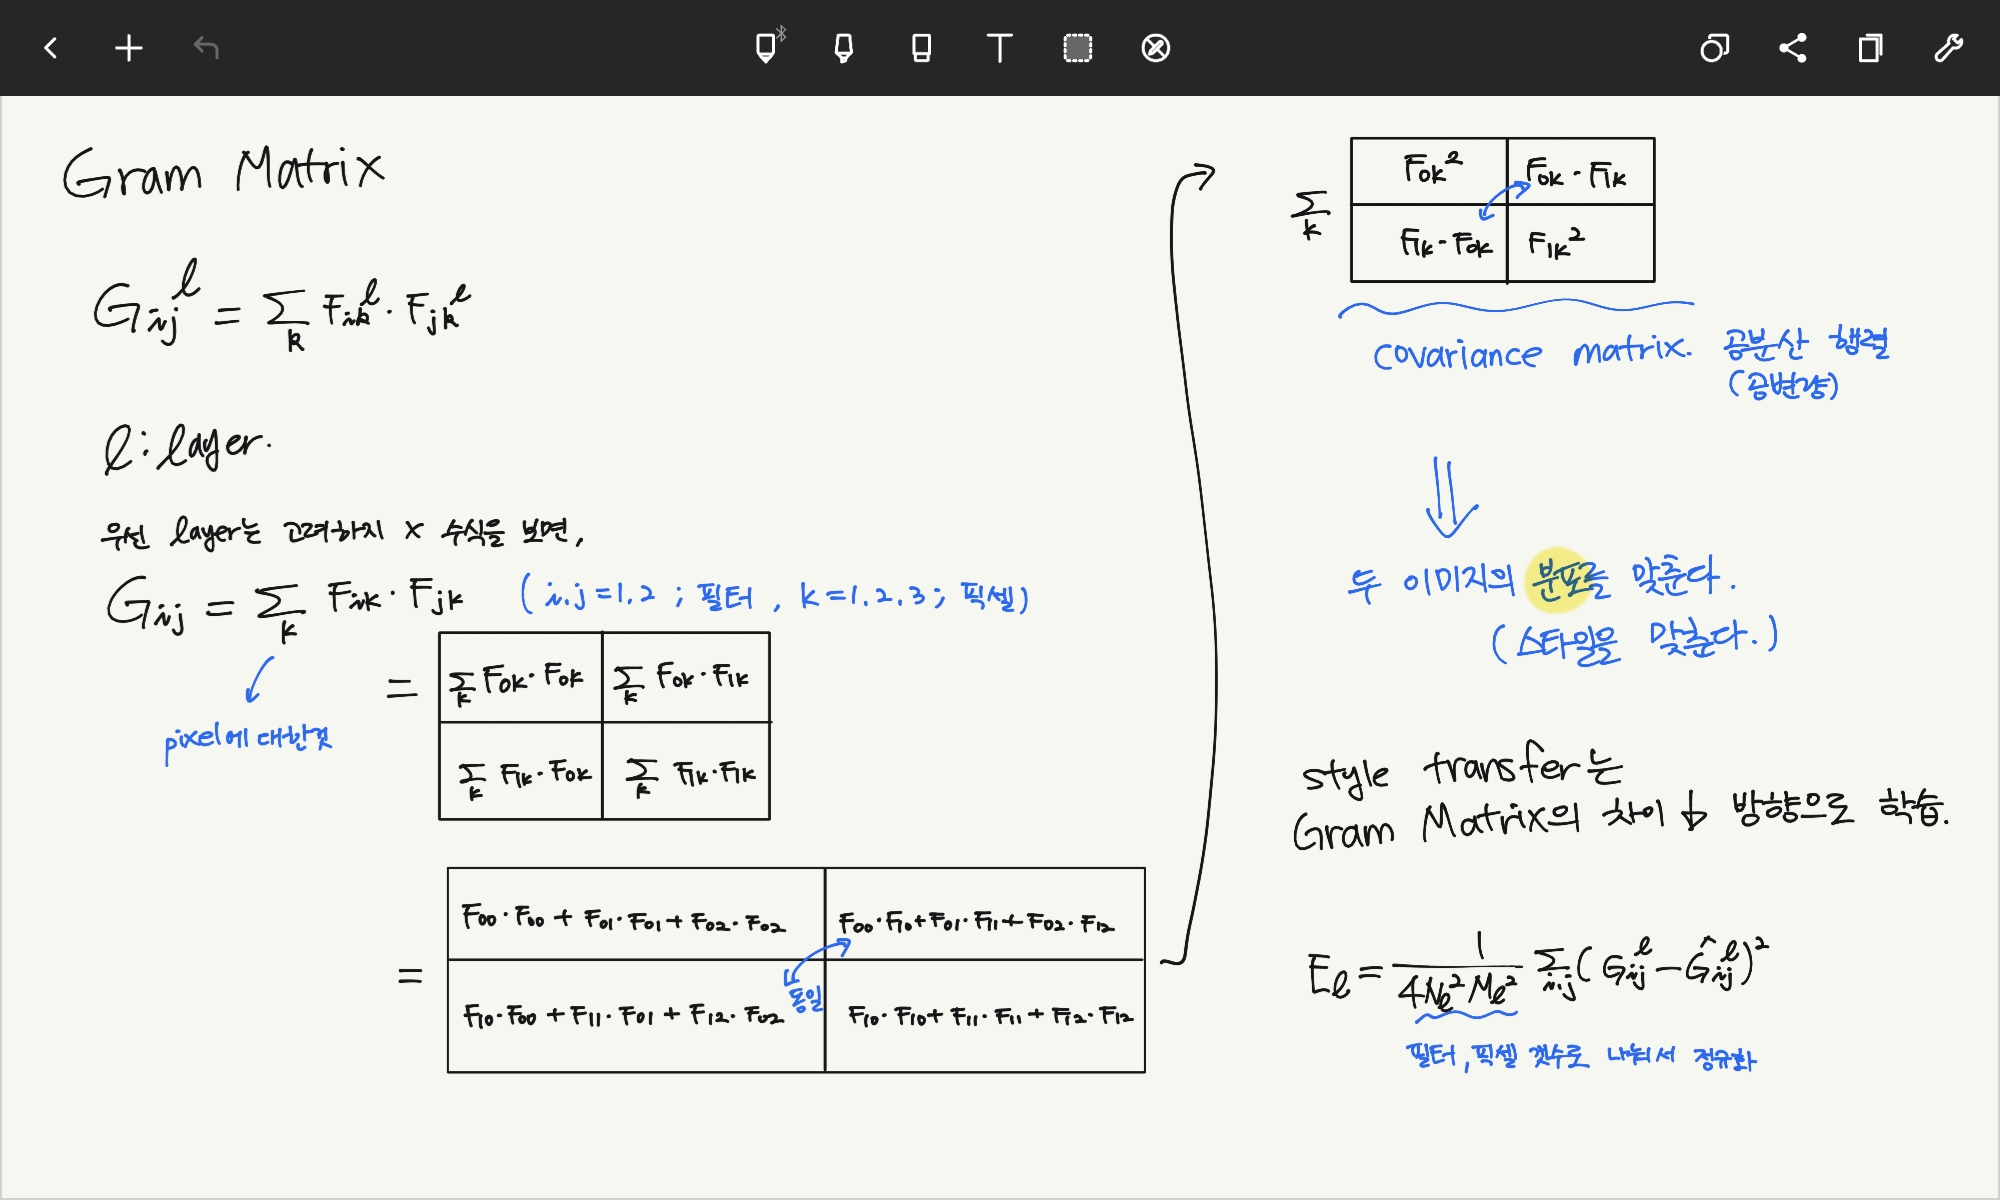 Gram Matrix
G_ij^l = Σ_k F_ik^l · F_jk^l
l : layer.
우선 layer는 고려하지 x 수식을 보면,
G_ij = Σ_k F_ik · F_jk (i.j = 1.2 ; 필터 , k = 1.2.3 ; 픽셀)
pixel에 대한것
= Σ_k F_0k · F_0k Σ_k F_0k · F_1k
Σ_k F_1k · F_0k Σ_k F_1k · F_1k
= F_00 · F_00 + F_01 · F_01 + F_02 · F_02 F_00 · F_10 + F_01 · F_11 + F_02 · F_12
동일
F_10 · F_00 + F_11 · F_01 + F_12 · F_02 F_10 · F_10 + F_11 · F_11 + F_12 · F_12
Σ_k F_0k² F_0k · F_1k
F_1k · F_0k F_1k²
covariance matrix. 공분산 행렬
(공변량)
⇓
두 이미지의 분포를 맞춘다.
(스타일을 맞춘다.)
style transfer는
Gram Matrix의 차이 ↓ 방향으로 학습.
E_l = 1 / 4N_l²M_l² Σ_i,j (G_ij^l − Ĝ_ij^l)²
필터, 픽셀 갯수로 나눠서 정규화